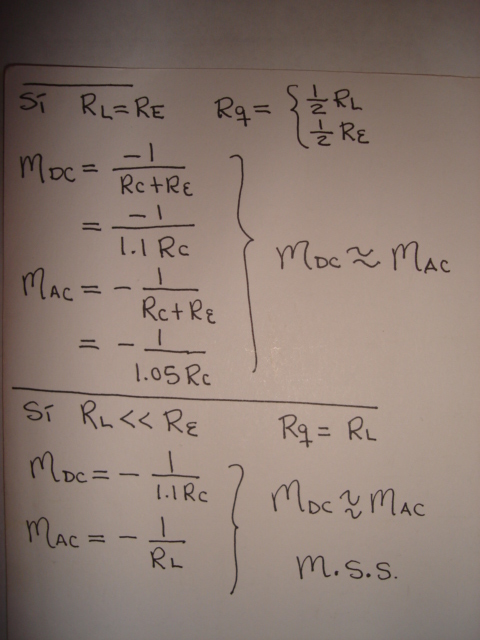 Si RL=RE Rq= { 1/2 RL
1/2 RE
mDC = -1/(RC+RE)
= -1/(1.1 RC)
mAC = - 1/(RC+RE)
= - 1/(1.05 RC)
} mDC ≈ mAC
Si RL << RE Rq = RL
mDC = - 1/(1.1 RC)
mAC = - 1/RL
} mDC ≈ mAC
m.s.s.